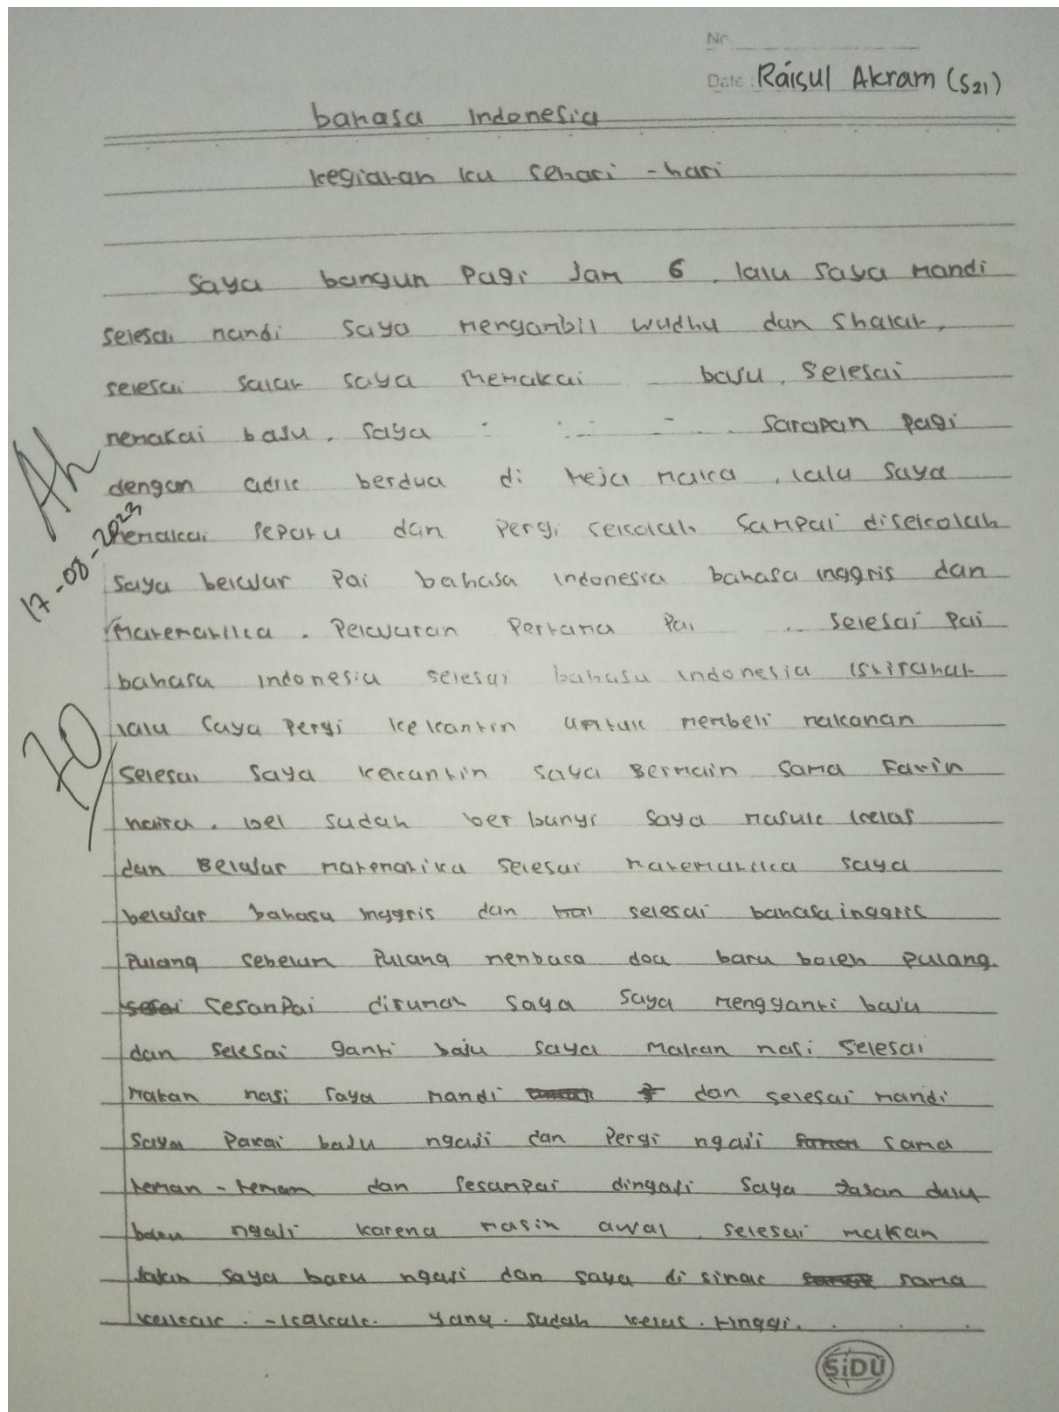 No
Date: Raisul Akram (S21)
bahasa Indonesia
kegiatan ku sehari - hari
Saya bangun Pagi Jam 6, lalu saya mandi
selesai mandi saya mengambil wudhu dan Shalat,
selesai salat saya memakai baju, selesai
memakai baju, saya sarapan pagi
dengan adik berdua di meja maka, lalu saya
memakai sepatu dan pergi sekolah sampai disekolah
saya belajar Pai bahasa indonesia bahasa inggris dan
Matematika. Pelajaran Pertama Pai selesai Pai
bahasa indonesia selesai bahasa indonesia istirahat
lalu saya pergi kekantin untuk membeli makanan
selesai saya kekantin saya Bermain sama Favin
naira. bel sudah ber bunyi saya masuk kelas
dan Belajar matematika selesai matematika saya
belajar bahasa inggris dan selesai bahasa inggris
Pulang sebelum Pulang membaca doa baru boleh pulang.
sesampai dirumah saya saya mengganti baju
dan selesai ganti baju saya makan nasi selesai
makan nasi saya mandi dan selesai mandi
saya Pakai baju ngaji dan Pergi ngaji sama
teman - temam dan sesampai dingaji saya Jajan dulu
baru ngaji karena masih awal. selesai makan
saya baru ngaji dan saya di simak sama
kakak - kakak. yang. sudah kelas. tinggi.
17-08-2023
70
SiDU